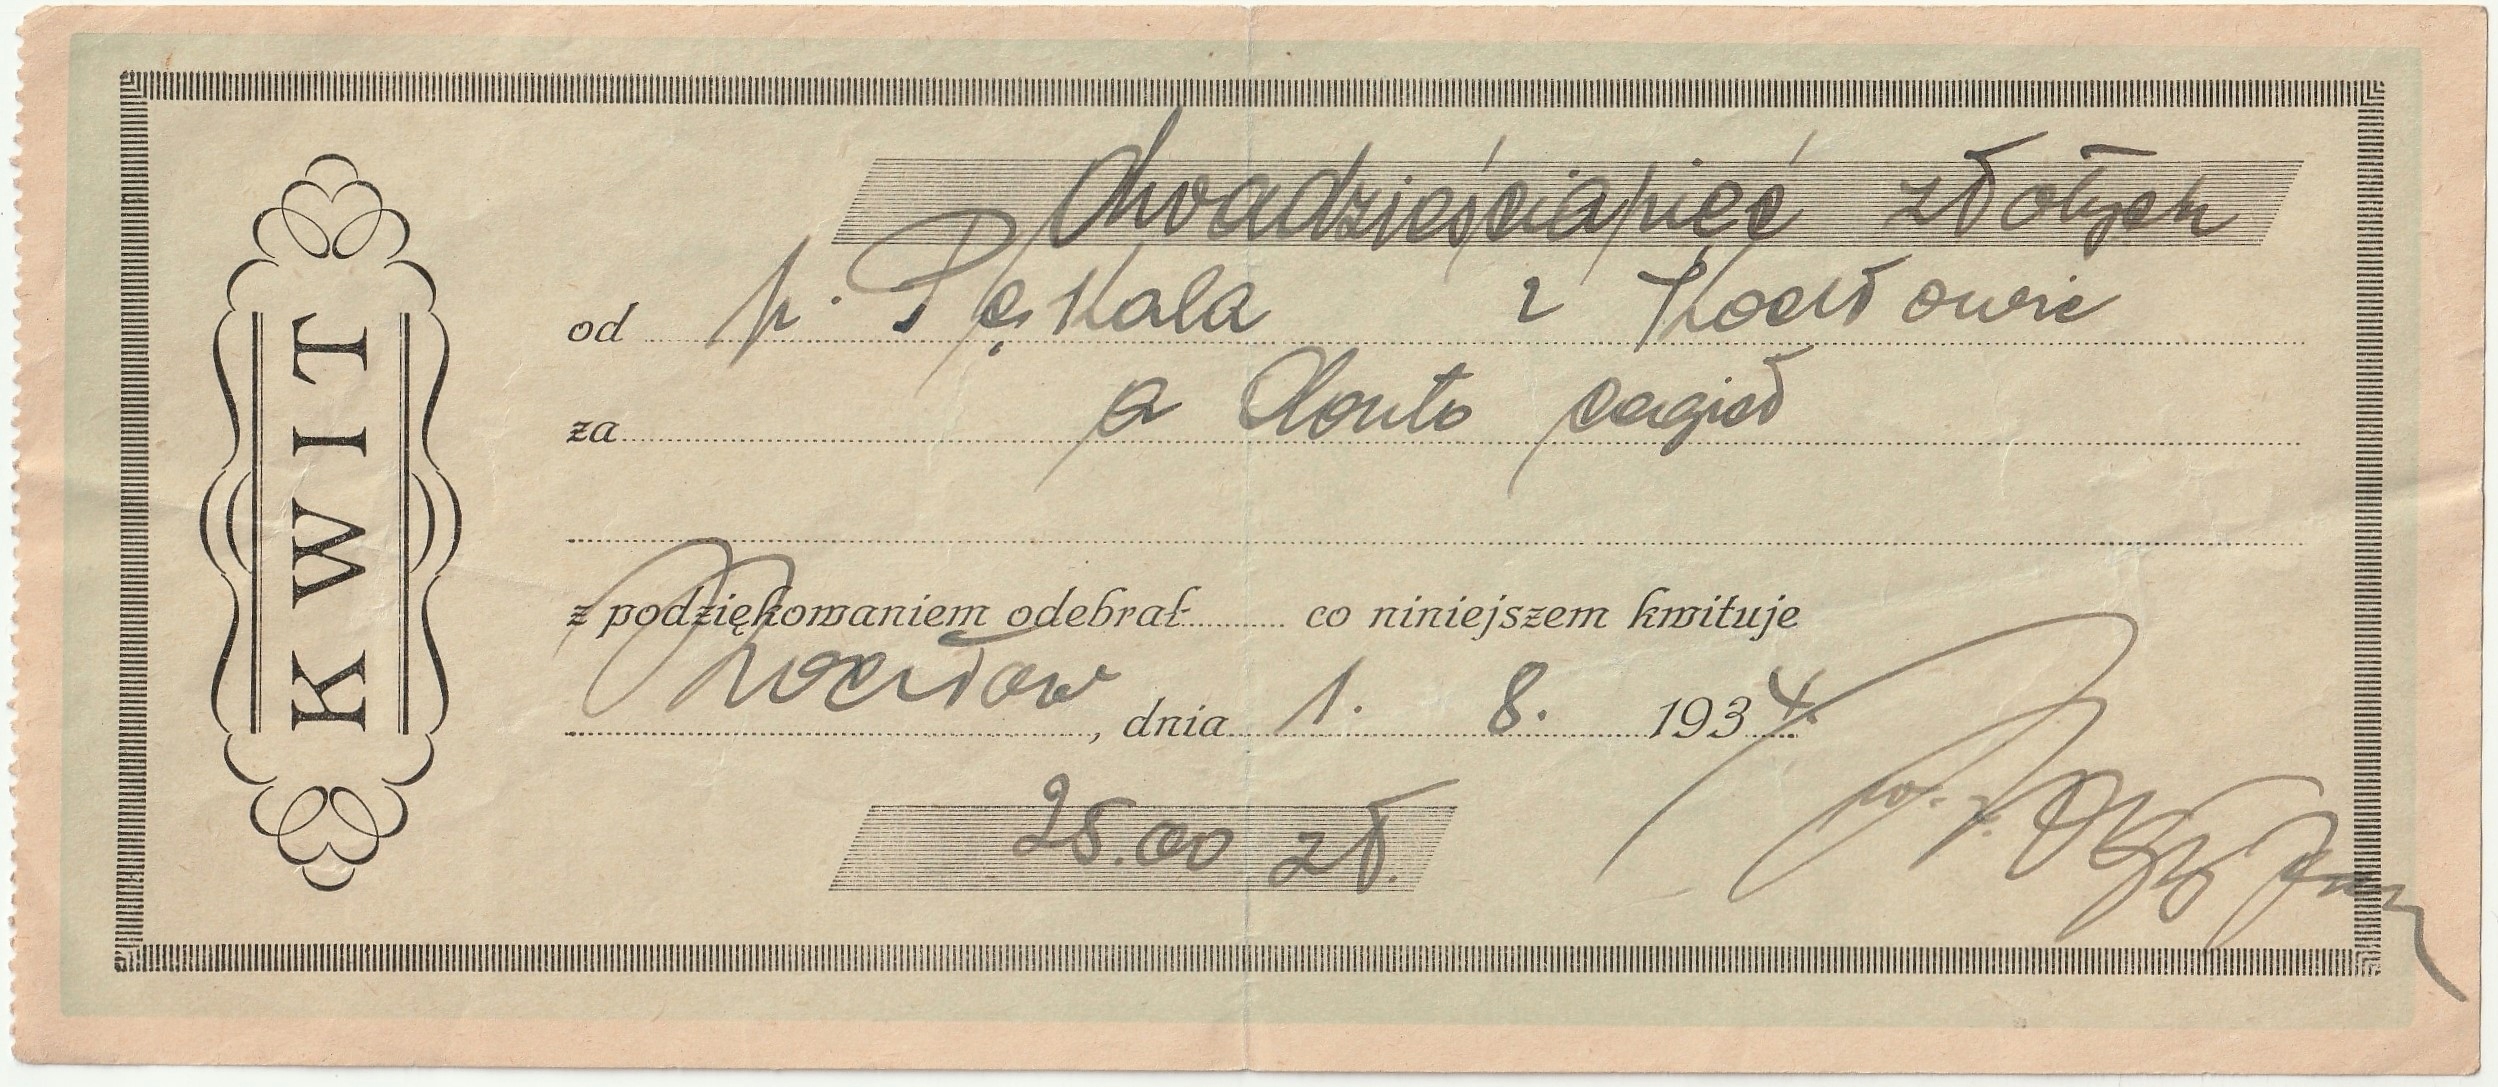 KWIT
dwadzieściapięć złotych
od p. Pękala z Kochłowic
za a Konto cegieł
z podziękowaniem odebrał............ co niniejszem kwituje
Kochłow, dnia 1. 8. 1934.
25.00 zł.